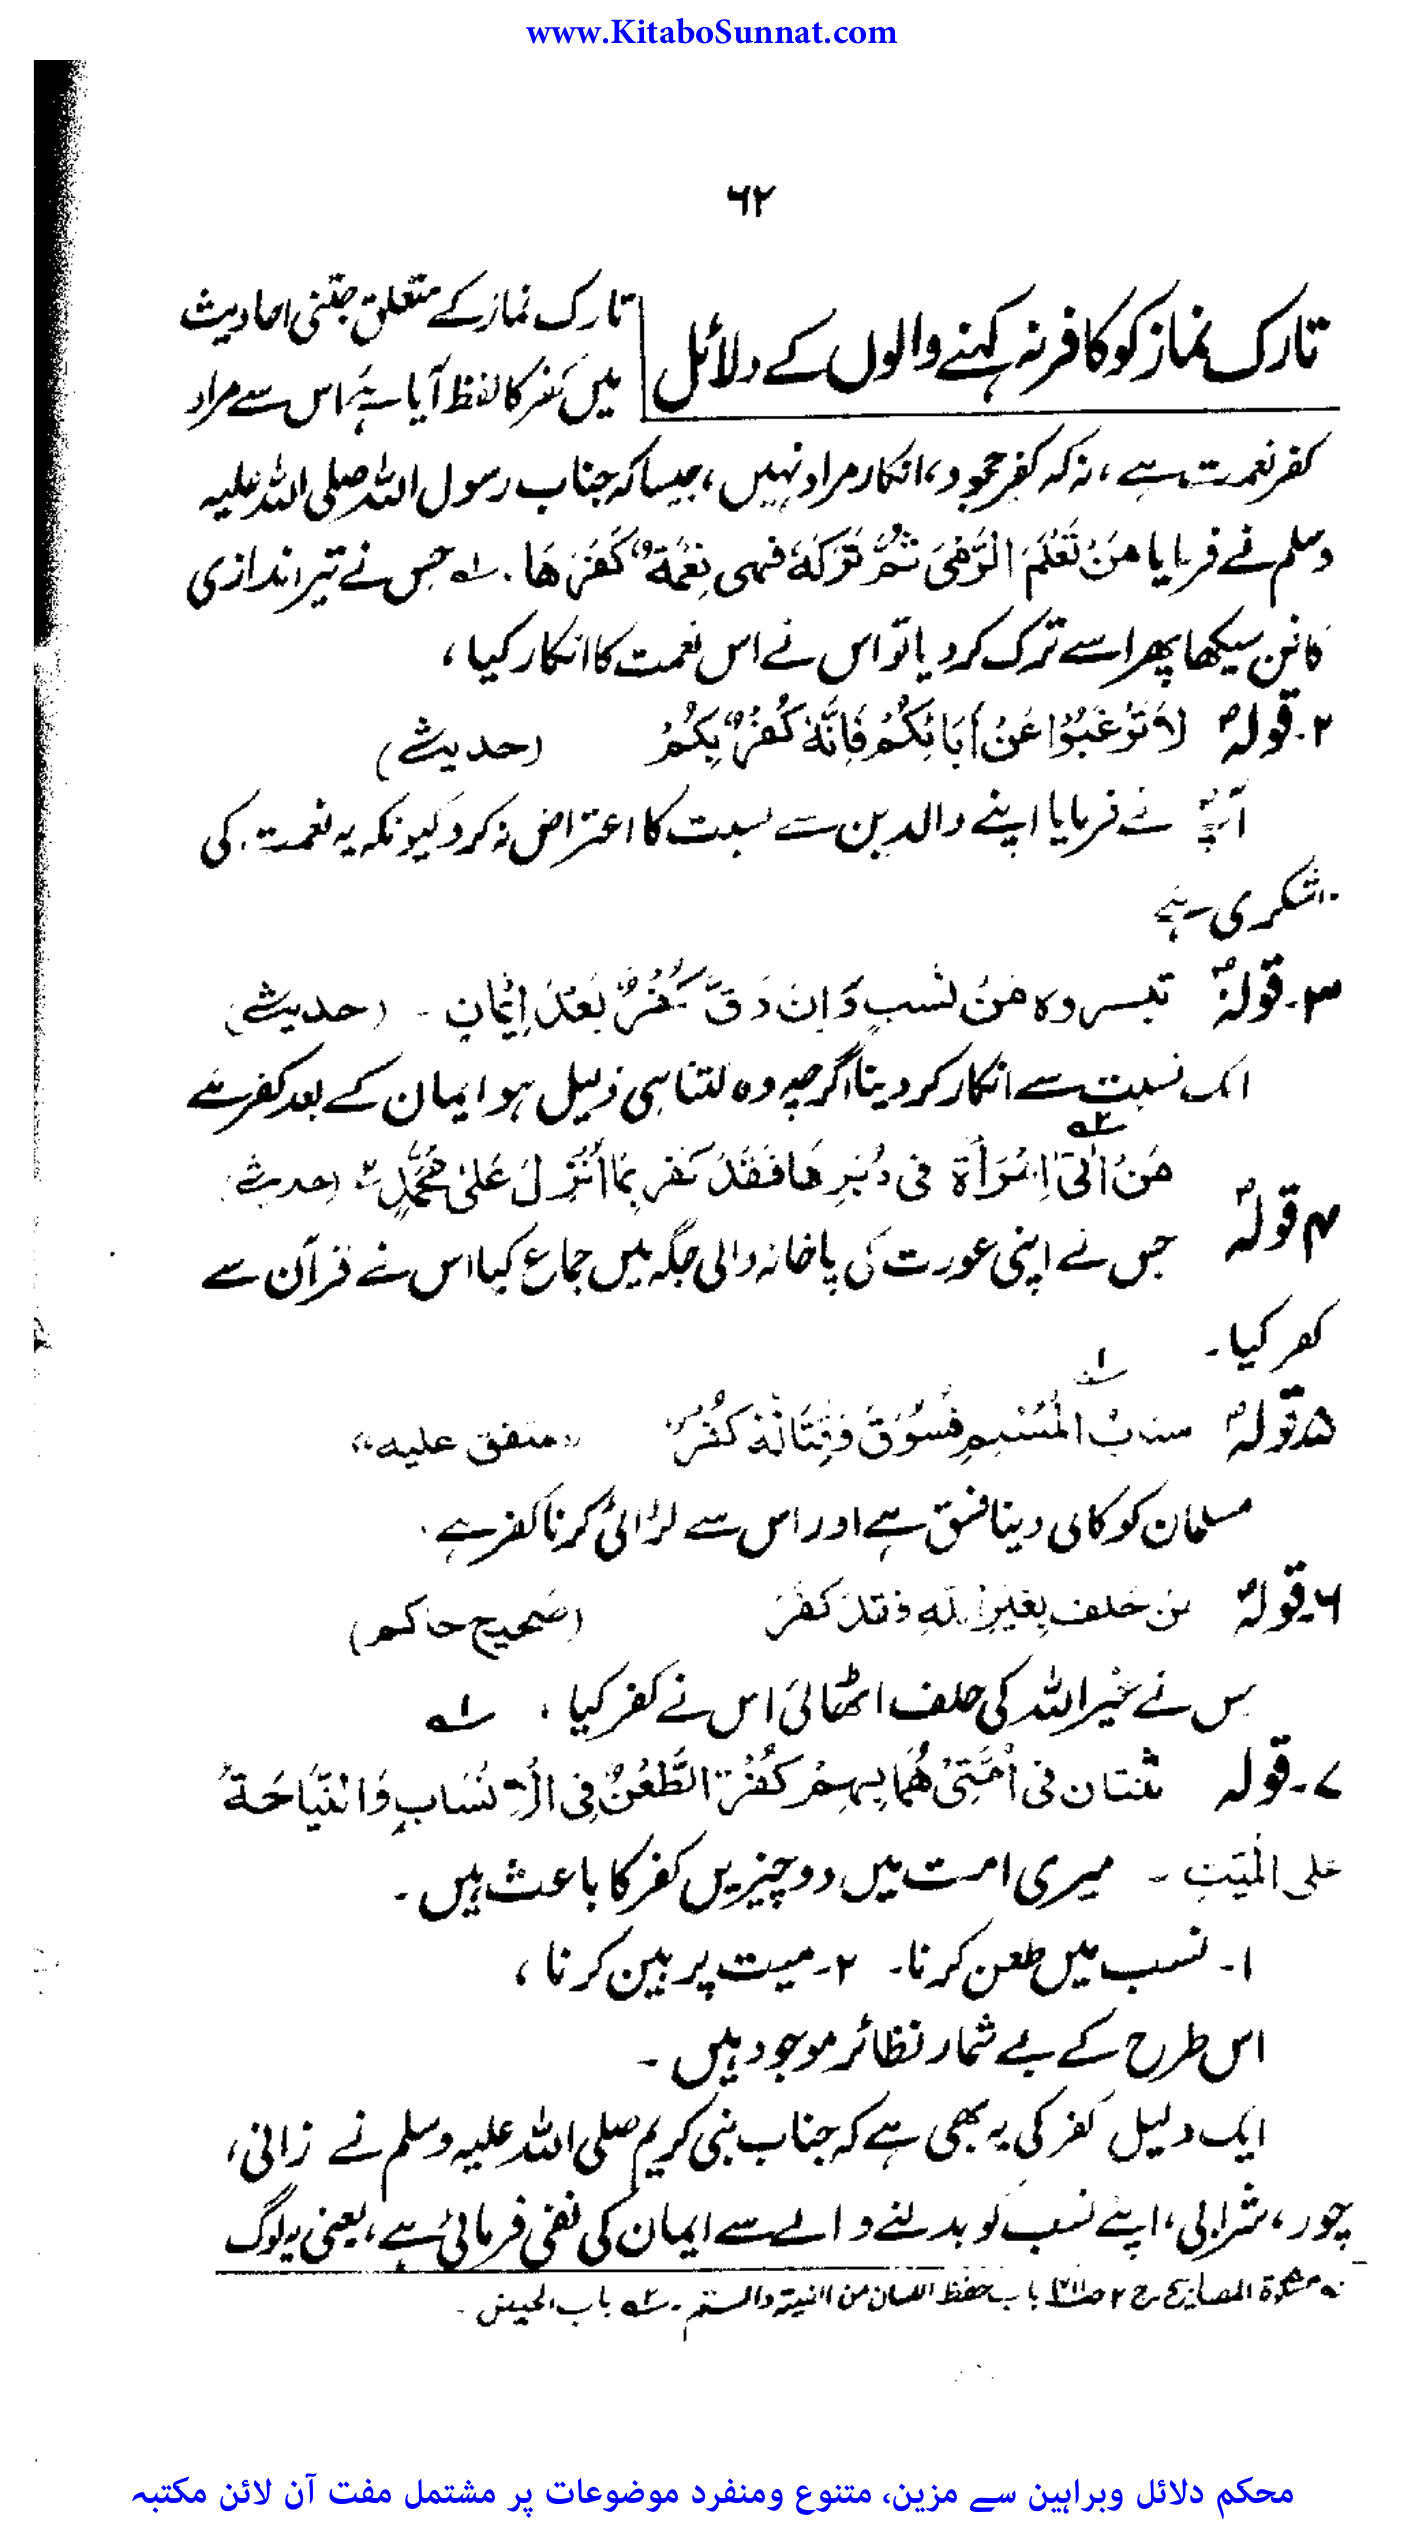 www.KitaboSunnat.com
٦٢
تارک نماز کو کافر نہ کہنے والوں کے دلائل
تارک نماز کے متعلق جتنی احادیث
میں کفر کا لفظ آیا ہے، اس سے مراد
کفر نعمت ہے ، نہ کہ کفر جحود ، انکار مراد نہیں ، جیسا کہ جناب رسول اللہ صلی اللہ علیہ
وسلم نے فرمایا مَنْ تَعَلَّمَ الرَّمْیَ ثُمَّ تَرَکَهٗ فَهِی نِعْمَةٌ کَفَرَ هَا ۔ ۱ه جس نے تیر اندازی
کا فن سیکھا پھر اسے ترک کر دیا تو اس نے اس نعمت کا انکار کیا ،
۲۔ قولہٗ لَا تَرْغَبُوْا عَنْ اٰبَائِکُمْ فَاِنَّهٗ کُفْرٌ بِکُمْ (حدیث)
آپؐ نے فرمایا اپنے والدین سے نسبت کا اعتراض نہ کرو کیونکہ یہ نعمت کی
ناشکری ہے
۳۔ قولہٗ وہ مَنْ نَسَبٍ وَاِنْ دَقَّ کُفْرٌ بَعْدَ اِیْمَانٍ ۔ (حدیث)
اک نسبت سے انکار کر دینا اگرچہ وہ کتنا ہی ذلیل ہو ایمان کے بعد کفر ہے
۲ه
۴ قولہٗ مَنْ اَتٰی اِمْرَأَةً فی دُبُرِ هَا فَقَدْ کَفَر بِمَا اُنْزِلَ عَلٰی مُحَمَّدٍؐ (حدیث)
جس نے اپنی عورت کی پاخانہ والی جگہ میں جماع کیا اس نے قرآن سے
کفر کیا ۔
۱ه
۵ قولہٗ سبَابُ الْمُسْلِمِ فُسُوْقٌ وَقِتَالُهٗ کُفْرٌ "متفق علیه"
مسلمان کو گالی دینا فسق ہے اور اس سے لڑائی کرنا کفر ہے ۔
۶۔ قولہٗ من حَلف بِغَیْرِ اللهِ فقدْ کَفَرَ (صَحیح حاکم)
جس نے غیر اللہ کی حلف اٹھائی اس نے کفر کیا ، ۱ه
۷۔ قولہ ثنتان فی اُمَّتِیْ هُمَا بِهِمْ کُفْرٌ الطَّعْنُ فِی الْاَنْسَابِ وَالنِّیَاحَةُ
عَلی الْمَیّتِ ۔ میری امت میں دو چیزیں کفر کا باعث ہیں ۔
۱۔ نسب میں طعن کرنا ۔ ۲۔ میت پر بین کرنا ،
اس طرح کے بے شمار نظائر موجود ہیں ۔
ایک دلیل کفر کی یہ بھی ہے کہ جناب نبی کریم صلی اللہ علیہ وسلم نے زانی ،
چور ، شرابی ، اپنے نسب کو بدلنے والے سے ایمان کی نفی فرمائی ہے ، یعنی یہ لوگ
۱ه مشکوٰة المصابیح ج ۲ باب حفظ اللسان من الغیبة والشتم ۔ ۲ه باب الحیض ۔
محکم دلائل وبراہین سے مزین، متنوع ومنفرد موضوعات پر مشتمل مفت آن لائن مکتبہ